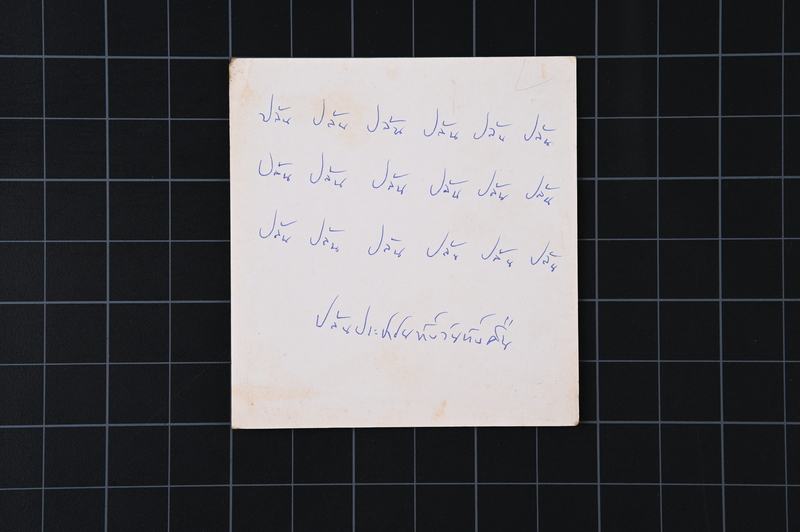 ปล้น ปล้น ปล้น ปล้น ปล้น ปล้น
ปล้น ปล้น ปล้น ปล้น ปล้น ปล้น
ปล้น ปล้น ปล้น ปล้น ปล้น ปล้น
ปล้นประชาชนทั้งวันทั้งคืน